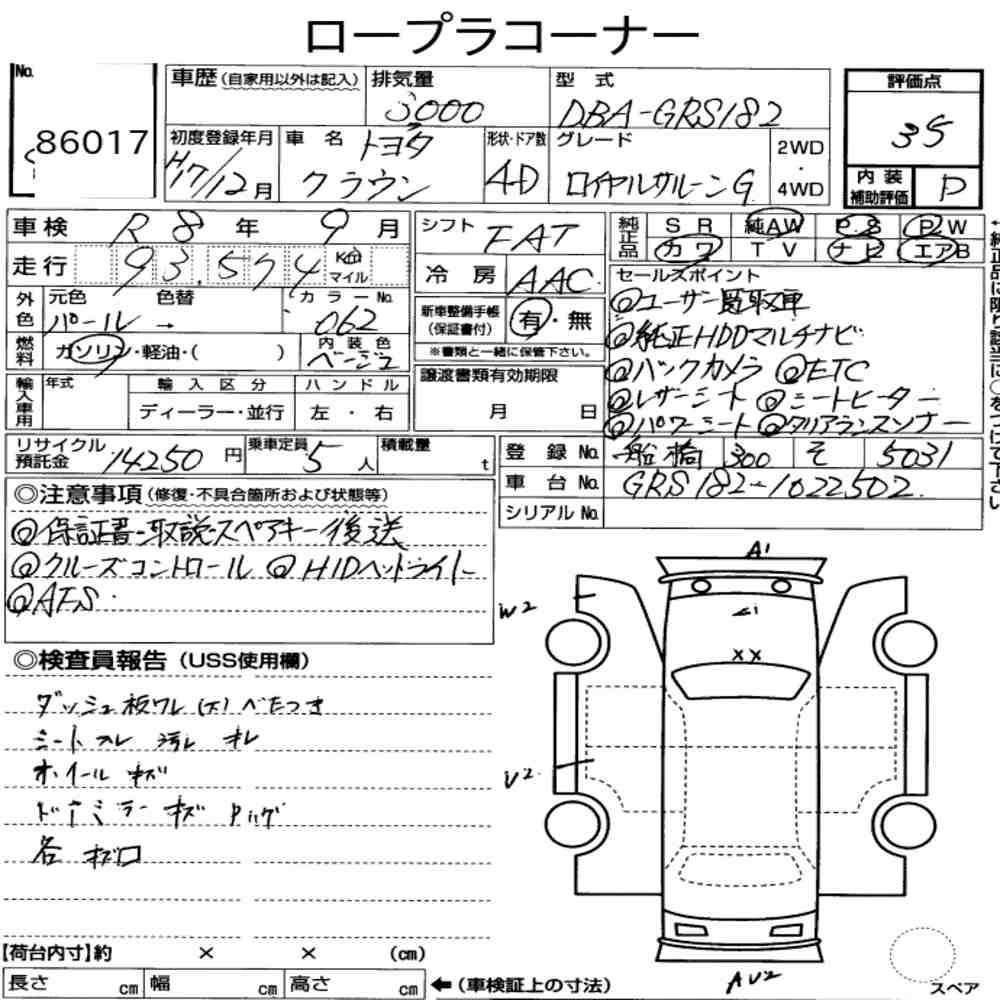 ロープラコーナー
No.
86017
車歴 (自家用以外は記入)
排気量
3000
型式
DBA-GRS182
評価点
35
内装
補助評価
D
初度登録年月
H17/12月
車名
トヨタ
クラウン
形状・ドア数
4D
グレード
ロイヤルサルーンG
2WD
・
4WD
車検 R 8 年 9 月
走行 93,574 Km マイル
シフト FAT
冷房 AAC
純正品
SR 純AW PS PW
カワ TV ナビ エアB
外色
元色 色替
パール →
カラーNo.
062
燃料
ガソリン・軽油・( )
内装色
ベージュ
新車整備手帳
(保証書付)
有・無
※書類と一緒に保管下さい。
セールスポイント
◎ユーザー買取車
◎純正HDDマルチナビ
◎バックカメラ ◎ETC
◎レザーシート ◎シートヒーター
◎パワーシート ◎クリアランスソナー
輸入車用
年式
輸入区分
ディーラー・並行
ハンドル
左・右
譲渡書類有効期限
月 日
リサイクル
預託金
14250円
乗車定員
5人
積載量
t
登録No. 船橋 300 そ 5031
車台No. GRS182-1022502
シリアルNo.
◎注意事項 (修復・不具合箇所および状態等)
◎保証書・取説・スペアキー後送
◎クルーズコントロール ◎HIDヘッドライト
◎AFS
◎検査員報告 (USS使用欄)
ダッシュ板ワレ (大) べたつき
シート スレ 汚レ オレ
ホイール キズ
ドアミラー キズ
各 キズ凹
A1
W2
XX
U2
AU2
【荷台内寸】約 × × (cm)
長さ cm 幅 cm 高さ cm
←(車検証上の寸法)
スペア